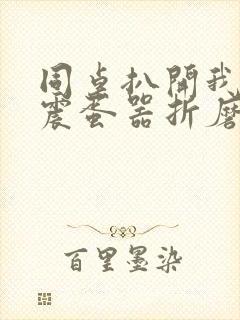 同桌扒開我
震蛋器折磨
百里墨染